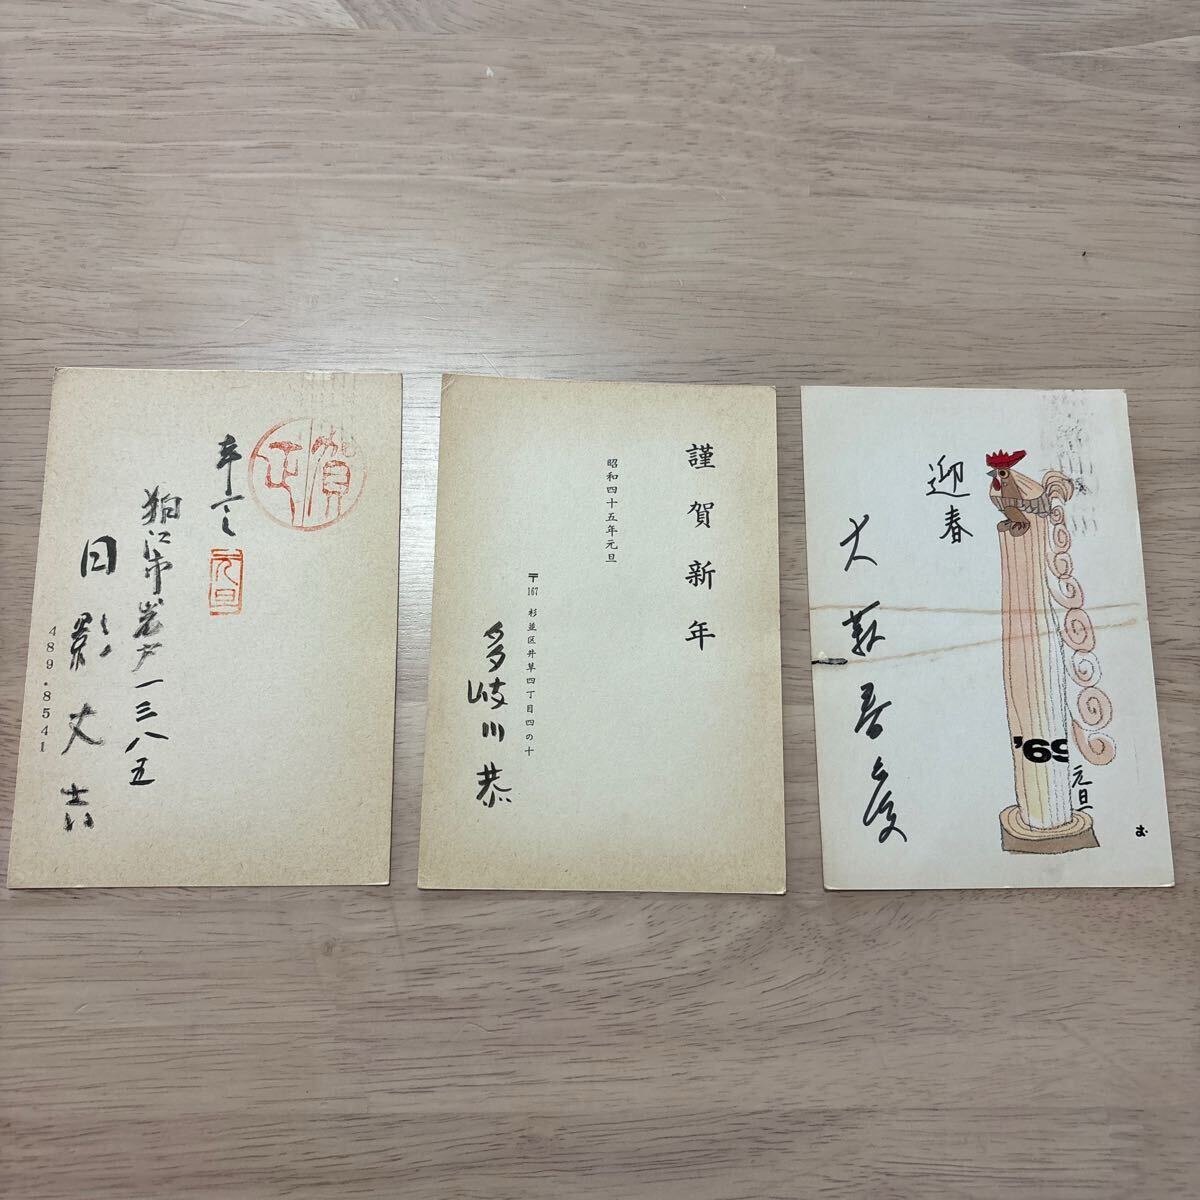 賀正
元旦
狛江市岩戸一三八五
日影丈吉
489・8541
謹賀新年
昭和四十五年元旦
〒167 杉並区井草四丁目四の十
多岐川恭
迎春
大藪春彦
'69
元旦
お